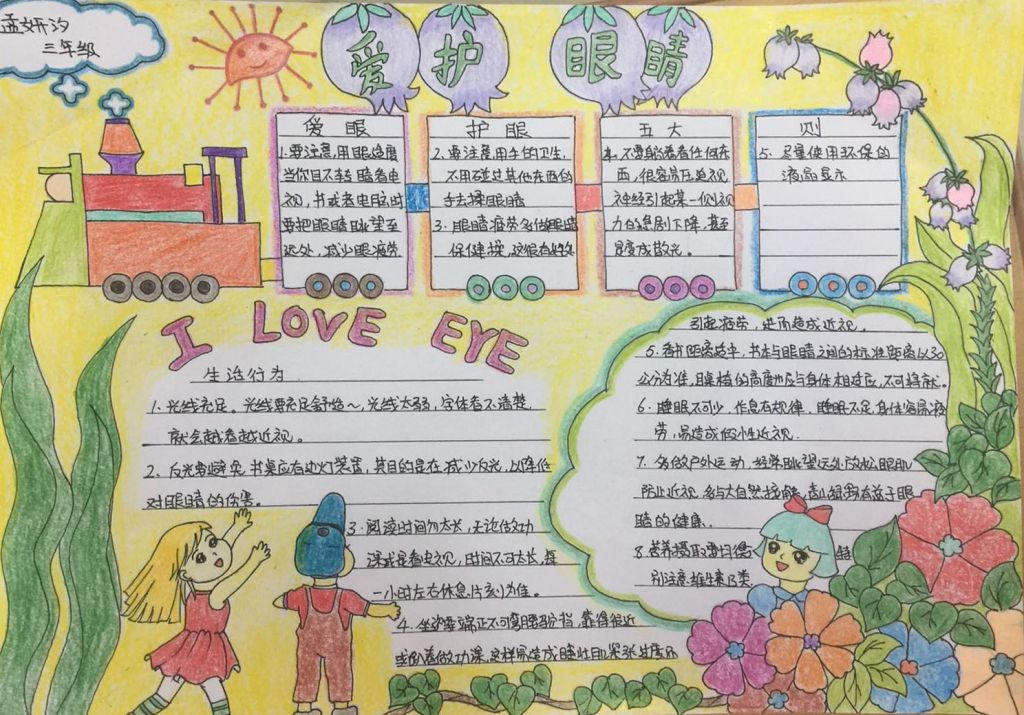 孟妍汐
三年级
爱护眼睛
爱眼
1.要注意,用眼适度
当你目不转睛看电
视,书或者电脑时
要把眼睛眺望至
远处,减少眼疲劳
护眼
2.要注意,用手的卫生,
不用碰过其他东西的
手去揉眼睛
3.眼睛疲劳多做眼睛
保健操,这很有好处
五大
4.不要躺着看任何东
西,很容易压迫视
神经引起某一侧视
力的急剧下降,甚至
会变成散光。
则
5.尽量使用环保的
液晶显示
I LOVE EYE
生活行为
1.光线充足。光线要充足舒适~,光线太弱,字体看不清楚
就会越看越近视。
2.反光要避免.书桌应有边灯装置,其目的旨在减少反光,以降低
对眼睛的伤害。
3.阅读时间勿太长,无论做功
课或是看电视,时间不可太长,每
一小时左右休息片刻为准。
4.坐姿要端正不可弯腰驼背,靠得很近
或趴着做功课,这样易造成睫状肌紧张过度
引起疲劳,进而造成近视。
5.看书距离适中,书本与眼睛之间的标准距离以30
公分为准,且桌椅的高度也应与身体相适应,不可将就。
6.睡眠不可少,作息有规律,睡眠不足身体容易疲
劳,易造成假性近视.
7.多做户外运动,经常眺望远处放松眼肌
防止近视,多与大自然接触,青山绿野有益于眼
睛的健康.
8.营养摄取要均衡 特
别注意维生素B类